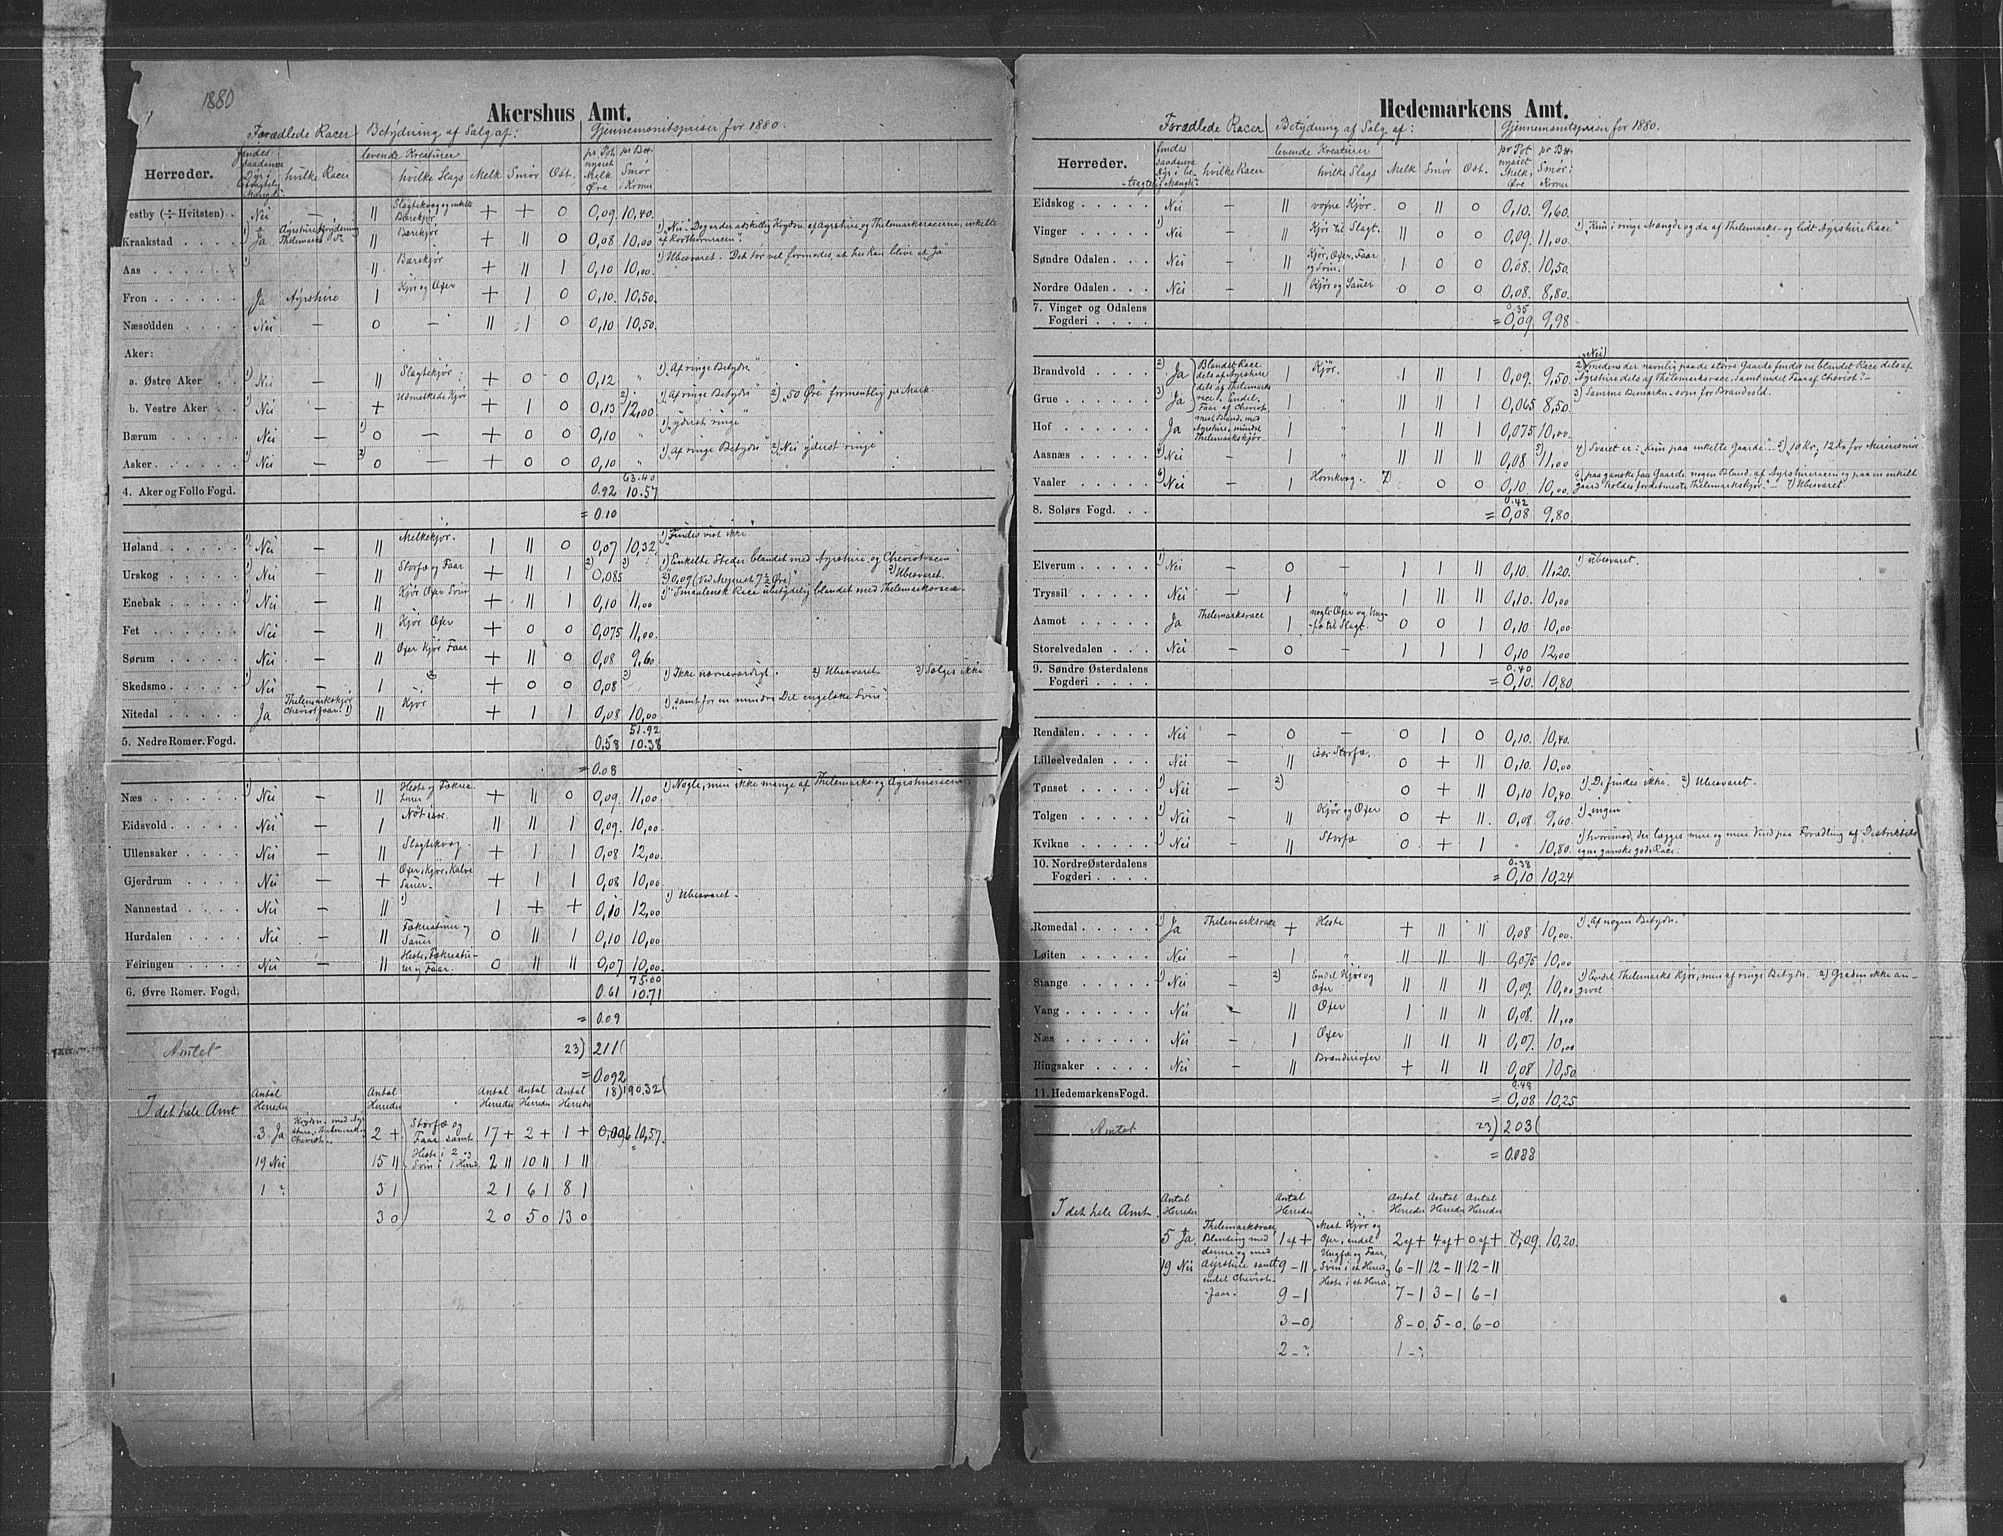 1880
Akershus Amt.
Forædlede Racer Betydning af Salg af: Gjennemsnitspriser for 1880.
Herreder. findes saadanne Dyr i betragtelig Mængde? hvilke Racer levende Kreaturer hvilke Slags Melk Smør Ost. pr Pot nysiet Melk Øre Smør i Kroner
Vestby (÷ Hvitsten) . Nei — || Slagtekvæg og enkelte Bærekjør + + 0 0,09. 10,40.
Kraakstad . . . . 1) Ja Ayrshire Thelemark || Bærekjør + || 0 0,08 10,00
Aas . . . . . . 1) || Bærekjør + || 1 0,10 10,00 1) Ubesvaret. Det tør vel formodes, at her kan blive et Ja
Fron . . . . . . Ja Ayrshire 1 Kjør og Oxer + 1 0 0,10. 10,50.
Næsodden . . . . Nei — 0 — || 1 0 0,10 10,50.
Aker:
a. Østre Aker . . 1) Nei || Slagtekjør + 0 0 0,12 " 1) "Af ringe Betydn"
b. Vestre Aker . . 1) Nei — + Udmelkede Kjør + 1 0 0,13 2) 12,00. 1) "Af ringe Betydn" 2) "50 Øre" formentlig pr Mark.
Bærum . . . . . Nei — 1) 0 — + 0 0 0,10 " 1) "yderst ringe"
Asker . . . . . 1) Nei — 2) 0 — + 0 0 0,10 " 1) "Af ringe Betydn" 2) "Nei yderst ringe"
63.40
4. Aker og Follo Fogd. 0.92 10.57
= 0.10
Høland . . . . . 1) Nei — || Melkekjør. 1 || 0 0,07 10,32. 1) "Findes vist ikke"
Urskog . . . . . 1) Nei — || Storfæ og Faar + || 1 2) 0,085 3) 1) "Enkelte Steder blandet med Ayrshire og Cheviotracen"
2) 0,09 (Ved Meieriet 7½ Øre) 3) Ubesvaret.
Enebak . . . . . 1) Nei — || Kjør Oxer Svin + || 1 0,10 11,00 1) "Smaalensk Race ubetydelig blandet med Thelemarksracen.
Fet . . . . . . Nei — || Kjør Oxer + 0 0 0,075 11,00.
Sørum . . . . . Nei — || Oxer Kjør Faar + || 0 0,08 9,60
Skedsmo . . . . 1) Nei — 1 2) + 0 0 0,08 3) 1) "Ikke nævneværdigt". 2) Ubesvaret 3) Sælges ikke
Nitedal . . . . . Ja Thelemarkskjør Cheviotfaar 1) || Kjør + 1 1 0,08 10,00 1) "samt for en mindre Del engelske Svin".
51.92
5. Nedre Romer. Fogd. 0.58 10.38
= 0.08
Næs . . . . . . 1) Nei — || Heste og Fækreaturer + || 0 0,09. 11,00. 1) "Nogle, men ikke mange af Thelemarks og Ayrshireracen.
Eidsvold . . . . Nei — 1 Nöt || || 1 0,09. 10,00.
Ullensaker . . . . Nei — || Slagtekvæg. + 1 1 0,08 12,00.
Gjerdrum . . . . Nei — + Oxer, Kjør, Kalve Sauer. + 1 1 0,08 10,00.
Nannestad . . . . Nei — || 1) 1 + + 0,10 12,00 1) Ubesvaret.
Hurdalen . . . . Nei — || Fækreaturer og Sauer 0 || 1 0,10 10,00
Feiringen . . . . Nei — || Heste, Fækreaturer og Faar. 0 || || 0,07 10,00.
75.00
6. Øvre Romer. Fogd. 0.61 10.71
= 0.09
Amtet 23) 211(
= 0.092
18) 190.32(
I det hele Amt Antal Herreder Antal Herreder Antal Herreder Antal Herreder Antal Herreder
3 Ja 2 + Storfæ og Faar samt Heste i 2 og Svin i 1 Herred 17 + 2 + 1 + 0,096 10,57.
19 Nei 15 || 2 || 10 || 1 ||
1 ? 3 1 2 1 6 1 8 1
3 0 2 0 5 0 13 0
Hedemarkens Amt.
Forædlede Racer Betydning af Salg af: Gjennemsnitspriser for 1880.
Herreder. findes saadanne Dyr i betragtelig Mængde? hvilke Racer levende Kreaturer hvilke Slags Melk Smør Ost. pr Pot nysiet Melk Øre Smør i Kroner
Eidskog . . . . . Nei — || voxne Kjør. 0 || 0 0,10. 9,60.
Vinger . . . . . 1) Nei — || Kjør til Slagt. || 0 0 0,09. 11,00. 1) "Kun i ringe Mængde og da af Thelemarks- og lidt Ayrshire Race"
Søndre Odalen . . . Nei — || Kjør, Oxer, Faar og Svin. 1 0 0 0,08. 10,50.
Nordre Odalen . . . Nei — || Kjør og Sauer 0 0 0 0,08. 8,80.
7. Vinger og Odalens Fogderi . . . . 0.35 = 0,09. 9,98
Brandvold . . . . 2) Ja Blandet Race dels af Ayrshire dels af Thelemarks race. Endel Faar af Cheviot 1 Kjør. 1 || 1 0,09. 9,50.
Grue . . . . . . 3) Ja 1 " || || 1 0,065 8,50. 3) Samme Bemærkn. som for Brandvold.
Hof . . . . . . Ja mest Bland. med Ayrshire, mindst Thelemarkskjør. 1 " 1 || 1 0,075 10,00.
Aasnæs . . . . . 4) Nei — 1 " || || || 0,08 5) 11,00 4) Svaret er: "Kun paa enkelte Gaarde". 5) 10 Kr, 12 Kr for Meierismør"
Vaaler . . . . . 6) Nei — 1 Hornkvæg. 7) 0 0 0,10 10,00
8. Solørs Fogd. . . 0.42 = 0,08 9,80.
Elverum . . . . . 1) Nei — 0 — 1 1 || 0,10. 11,20. 1) ubesvaret.
Tryssil . . . . . Nei — 1 " 1 || || 0,10. 10,00
Aamot . . . . . Ja Thelemarksrace 1 nogle Oxer og Ungfæ til Slagt. 0 0 1 0,10 10,00
Storelvedalen . . . Nei — 0 — 1 1 1 0,10 12,00
9. Søndre Østerdalens Fogderi . . . . 0.40 = 0,10. 10,80
Rendalen . . . . Nei — 0 — 0 1 0 0,10. 10,40.
Lilleelvedalen . . . Nei — || især Storfæ. 0 + || 0,10. 10,00
Tønset . . . . . 1) Nei — 2) 0 + || 0,10 10,40 1) D. findes ikke. 2) Ubesvaret.
Tolgen . . . . . 1) Nei — || Kjør og Oxer 0 + || 0,08 9,60 1) "ingen"
Kvikne . . . . . 1) Nei — || Storfæ 0 + 1 " 10,80. 1) hvorimod der lægges mere og mere Vind paa Forædling af Distriktets egne ganske gode Race.
10. Nordre Østerdalens Fogderi . . . . 0.38 = 0,10 10,24
Romedal . . . . . 1) Ja Thelemarksrace + Heste + || || 0,08 10,00. 1) "Af nogen Betydn."
Løiten . . . . . Nei — 1 " || || || 0,075 10,00
Stange . . . . . 1) Nei — 2) Endel Kjør og Oxer || || || 0,09. 10,00 1) "Endel Thelemarks Kjør, men af ringe Betydn. 2) Graden ikke angivet
Vang . . . . . . Nei — || Oxer 1 || || 0,08. 11,00
Næs . . . . . . Nei — 1 Oxer || || || 0,07. 10,00
Ringsaker . . . . Nei — || + || || 0,08 10,50
11. Hedemarkens Fogd. 0.48 = 0,08 10,25
Amtet 23) 203(
= 0.088
I det hele Amt. Antal Herreder Antal Herreder Antal Herreder Antal Herreder Antal Herreder
5 Ja Thelemarksrace, Blanding med denne og med Ayrshire samt endel Cheviot-faar. 1 af + Mest Kjør og Oxer, endel Ungfæ og Faar, Svin i et Herred, Heste i et Herred 2 af + 4 af + 0 af + 0,09. 10,20.
19 Nei 9 – || 6 – || 12 – || 12 – ||
9 – 1 7 – 1 3 – 1 6 – 1
3 – 0 8 – 0 5 – 0 6 – 0
2 – ? 1 – ?